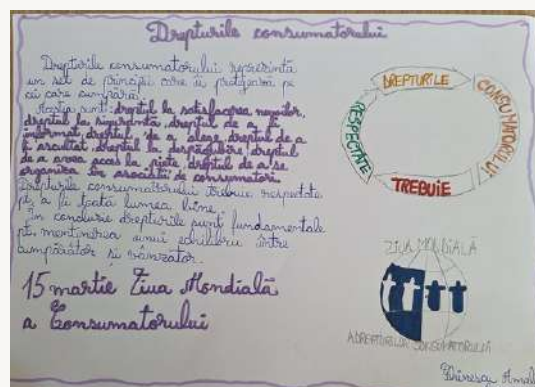 Drepturile consumatorului
Drepturile consumatorului reprezintă
un set de principii care îi protejează pe
cei care cumpără.
Acestea sunt: dreptul la satisfacerea nevoilor,
dreptul la siguranță, dreptul de a fi
informat, dreptul de a alege, dreptul de a
fi ascultat, dreptul la despăgubire, dreptul
de a avea acces la piețe, dreptul de a se
organiza în asociații de consumatori.
Drepturile consumatorului trebuie respectate
pt. a fi toată lumea bine.
În concluzie drepturile sunt fundamentale
pt. menținerea unui echilibru între
cumpărător și vânzător.
15 martie Ziua Mondială
a Consumatorului
DREPTURILE
CONSUMATORULUI
TREBUIE
RESPECTATE
ZIUA MONDIALĂ
A DREPTURILOR CONSUMATORULUI